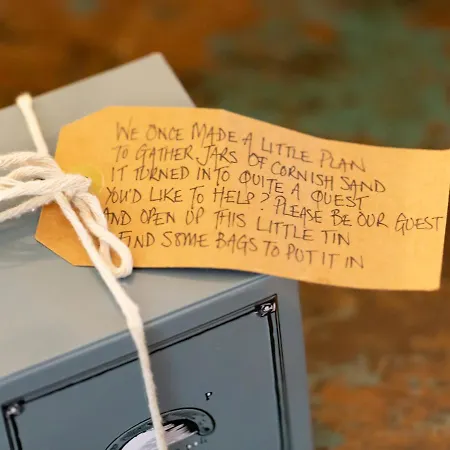 WE ONCE MADE A LITTLE PLAN
TO GATHER JARS OF CORNISH SAND
IT TURNED INTO QUITE A QUEST
YOU'D LIKE TO HELP? PLEASE BE OUR GUEST
AND OPEN UP THIS LITTLE TIN
FIND SOME BAGS TO PUT IT IN